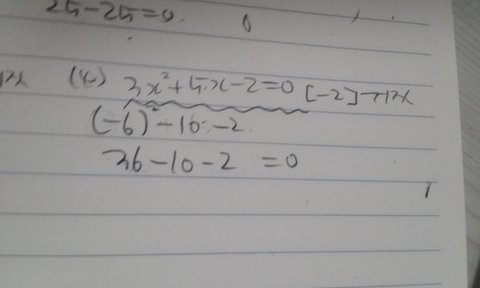 25-25=0.
(4) 3x²+5x-2=0 [-2]
(-6)²-10-2
36-10-2 =0